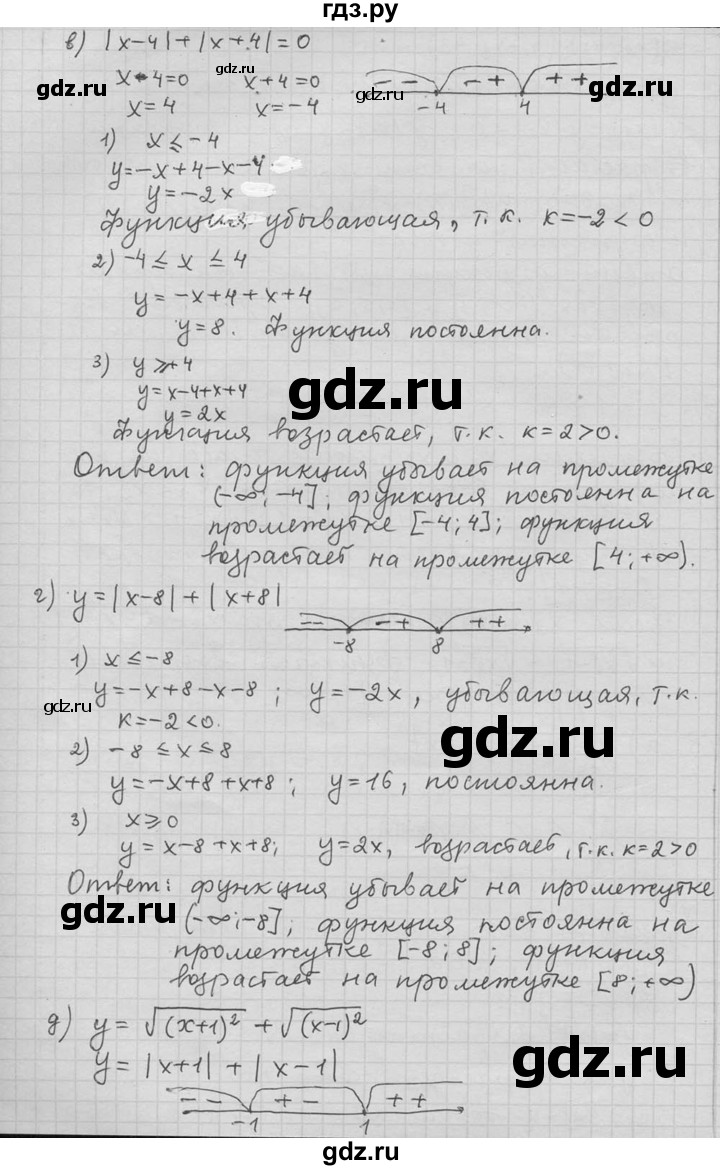 гдз.ру
в) |x-4|+|x+4|=0
x-4=0 x+4=0
x=4 x=-4
- - - + + +
-4 4
gdz.ru gdz.ru gdz.ru
1) x≤-4
y=-x+4-x-4
y=-2x
Функция убывающая, т.к. k=-2<0
2) -4≤x≤4
y=-x+4+x+4
y=8. Функция постоянна.
3) y≥+4
y=x-4+x+4
gdz.ru
y=2x
Функция возрастает, т.к. k=2>0.
Ответ: функция убывает на промежутке
(-∞;-4]; функция постоянна на
gdz.ru
промежутке [-4;4]; функция
возрастает на промежутке [4;+∞).
г) y=|x-8|+|x+8|
-- -+ ++
-8 8
1) x≤-8
y=-x+8-x-8; y=-2x, убывающая, т.к.
gdz.ru
k=-2<0.
2) -8≤x≤8
gdz.ru
y=-x+8+x+8; y=16, постоянна.
3) x≥0
y=x-8+x+8; y=2x, возрастает, т.к. k=2>0
Ответ: функция убывает на промежутке
gdz.ru
(-∞;-8]; функция постоянна на
промежутке [-8;8]; функция
gdz.ru
возрастает на промежутке [8;+∞)
д) y=√(x+1)² + √(x-1)²
y=|x+1|+|x-1|
gdz.ru
- - + - + +
-1 1
gdz.ru